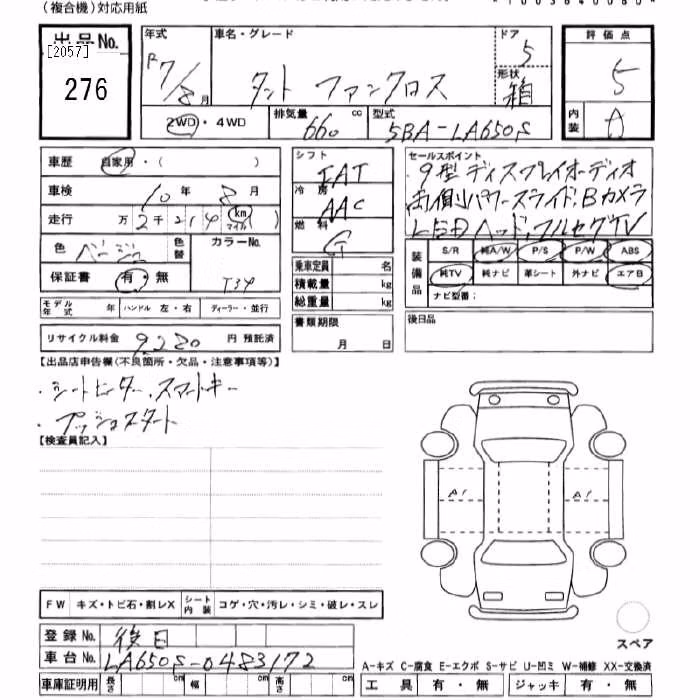 (複合機)対応用紙
出品No.
[2057]
276
年式
R7/8月
車名・グレード
タント ファンクロス
ドア
5
形状
箱
2WD・4WD
排気量
660 cc
型式
5BA-LA650S
評価点
5
内装
A
車歴 自家用・( )
車検 10年 8月
走行 万2千214 (km マイル)
色 ベージュ 色替
カラーNo.
T34
保証書 有・無
モデル年式 年 ハンドル 左・右 ディーラー・並行
リサイクル料金 9,220円 預託済
シフト
IAT
冷房
AAC
燃料
G
乗車定員 名
積載量 kg
総重量 kg
書類期限
月 日
セールスポイント
9型ディスプレイオーディオ
両側パワースライド、Bカメラ
LEDヘッド、フルセグTV
装備品
S/R 純A/W P/S P/W ABS
純TV 純ナビ 革シート 外ナビ エアB
ナビ型番:
後日品
【出品店申告欄(不良箇所・欠品・注意事項等)】
・シートヒーター、スマートキー
・プッシュスタート
【検査員記入】
A1
A1
FW キズ・トビ石・割レX シート内装 コゲ・穴・汚レ・シミ・破レ・スレ
スペア
登録No. 後日
車台No. LA650S-0483172
車庫証明用 長さ cm 幅 cm 高さ cm
A-キズ C-腐食 E-エクボ S-サビ U-凹ミ W-補修 XX-交換済
工具 有・無 ジャッキ 有・無